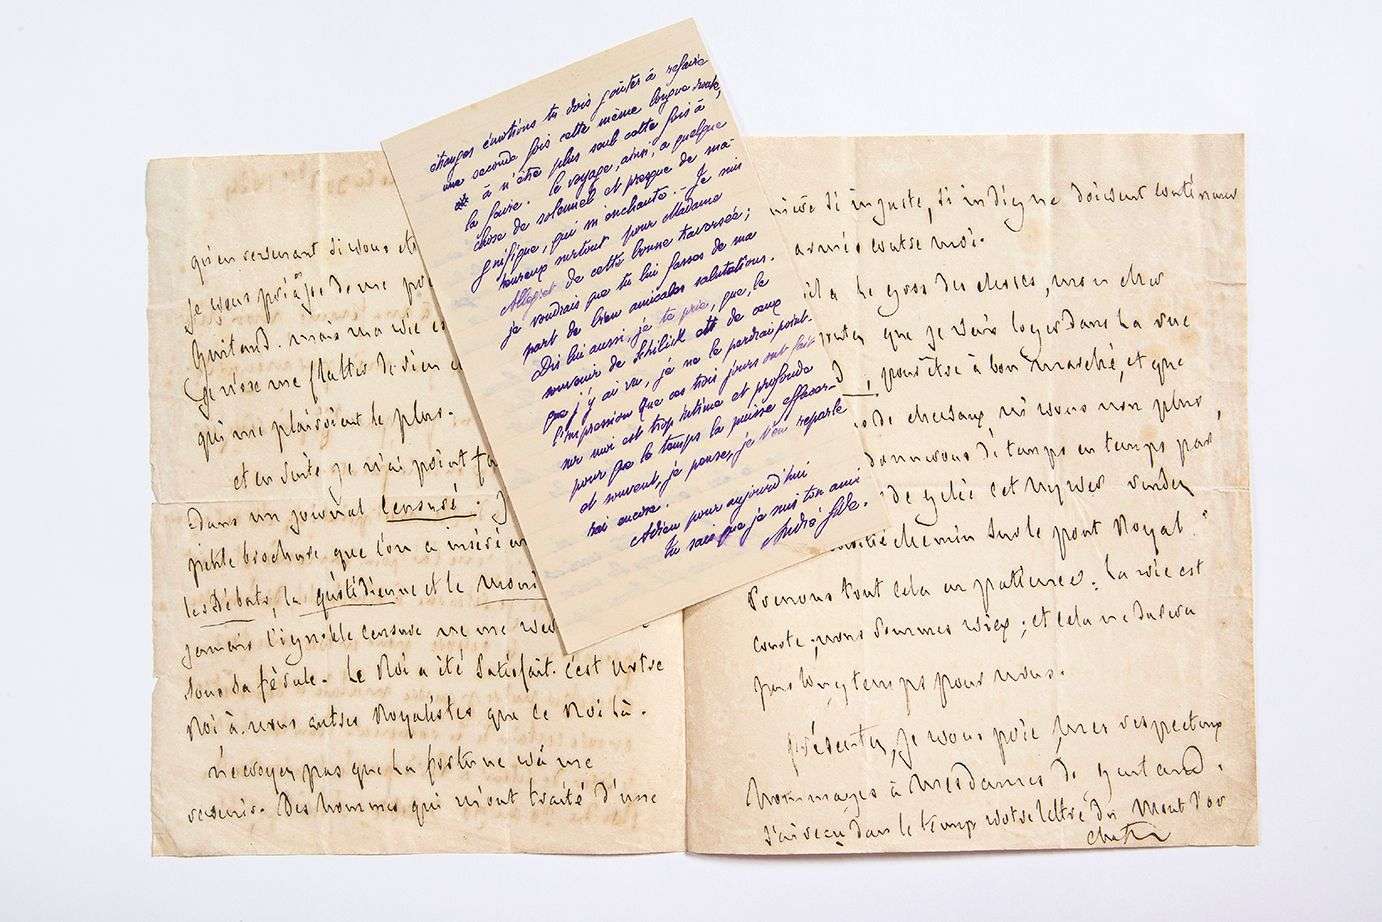 étranges émotions tu dois goûter à refaire
une seconde fois cette même longue route,
à n'être plus seul cette fois à
la faire. Le voyage, ainsi, a quelque
chose de solennel et presque de ma-
gnifique, qui m'enchante... Je suis
heureux surtout pour Madame
Allégret de cette bonne traversée;
je voudrais que tu lui fasses de ma
part de bien amicales salutations.
Dis lui aussi, je te prie, que, le
souvenir de est de ceux
que j'y ai vu, je ne le perdrai point.
l'impression que ces trois jours ont fait
sur moi est trop intime et profonde
pour que le temps la puisse effacer
et souvent, je pense, je t'en reparle
rai encore.
Adieu pour aujourd'hui
tu sais que je suis ton ami
André Gide.
qu'en revenant si vous
je vous prie de me
Guitaud. mais ma vie
je n'ose me flatter de rien
qui me plairoient le plus.
et en suite je n'ai point
Dans un journal censuré:
petite brochure que l'on a inséré
les Débats, la quotidienne et le
jamais l'ignoble censure ne me
sous sa férule. Le Roi a été satisfait. c'est notre
Roi à nous autres Royalistes que ce Roi là.
ne croyez pas que la fortune va me
revenir. Des hommes qui m'ont traité d'une
si injuste, si indigne doivent continuer
armés contre moi.
le gros des choses, mon cher
que je vais loger dans la rue
, pour être à bon marché, et que
de chevaux ni vous non plus,
donnerons de tems en temps par
de
chemin sur le pont Royal.
Prenons tout cela en patience: la vie est
courte; nous sommes vieux; et cela ne durera
pas longtemps pour nous.
présentez, je vous prie, mes respectueux
hommages à Mesdames de
J'ai reçu dans le temps votre lettre du Mont d'or